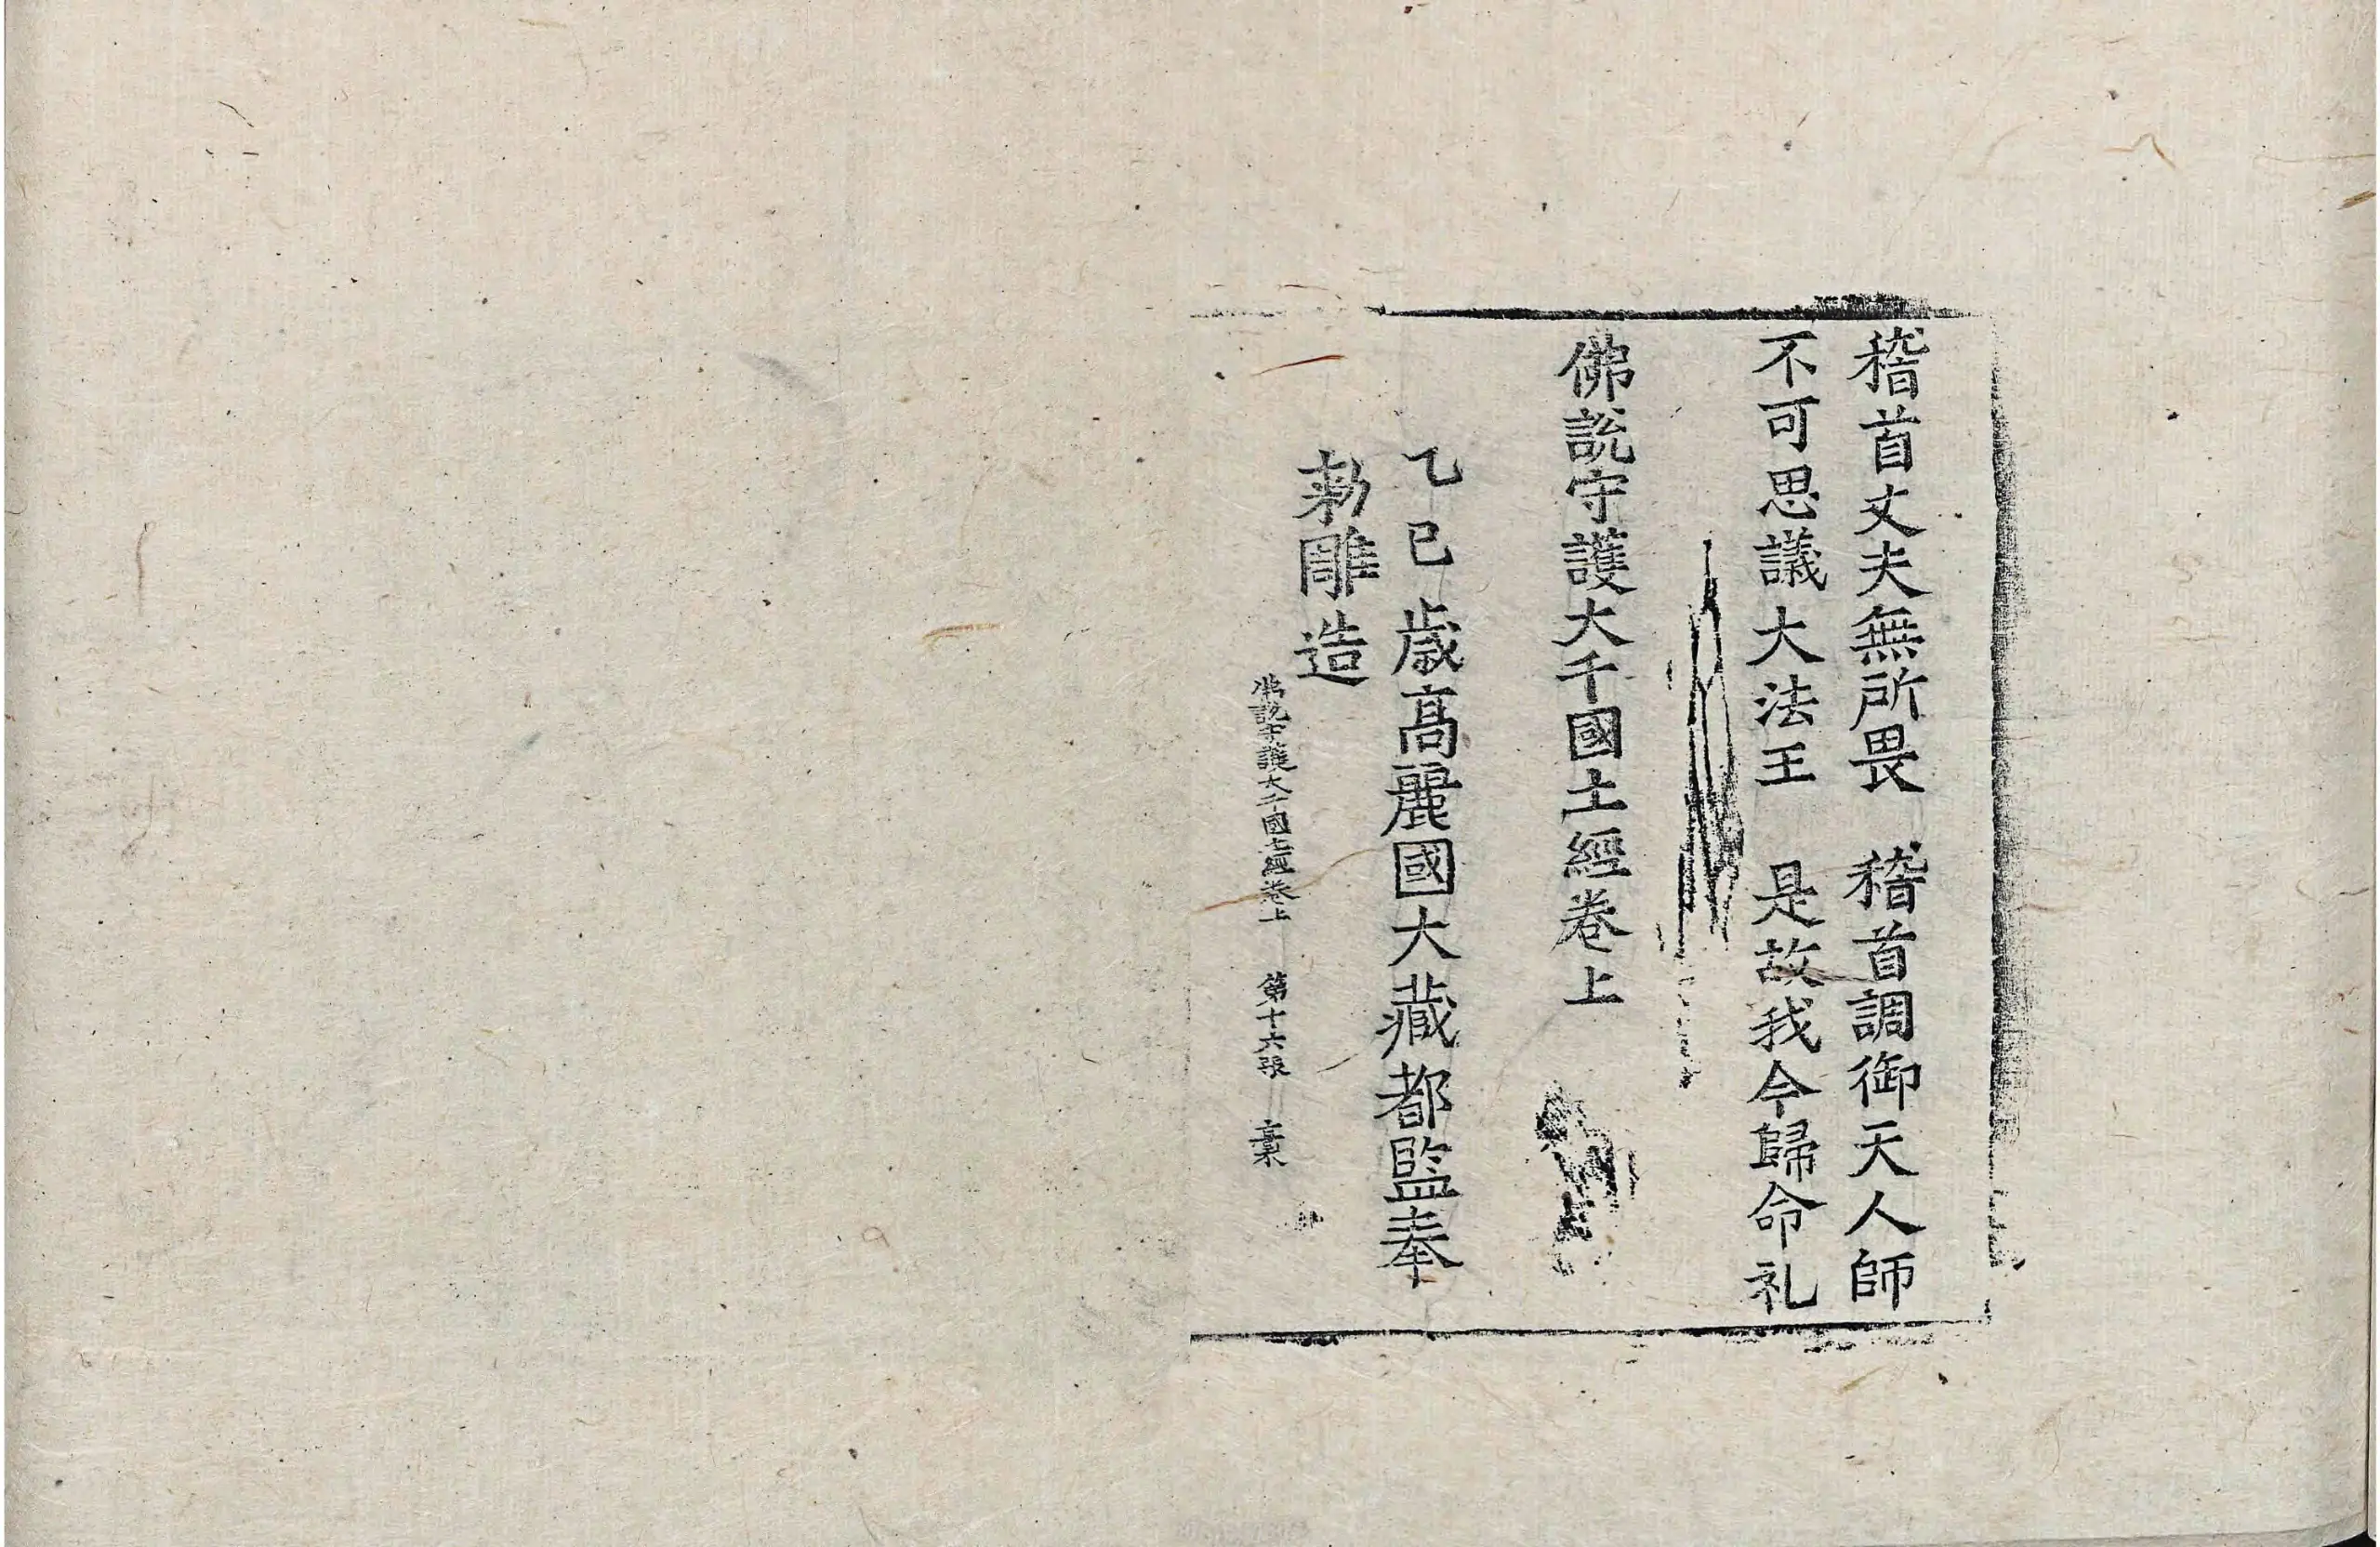 稽首丈夫無所畏　稽首調御天人師
不可思議大法王　是故我今歸命礼
佛說守護大千國土經卷上
乙巳歲高麗國大藏都監奉
勅雕造
佛說守護大千國土經卷上　第十六張　橐